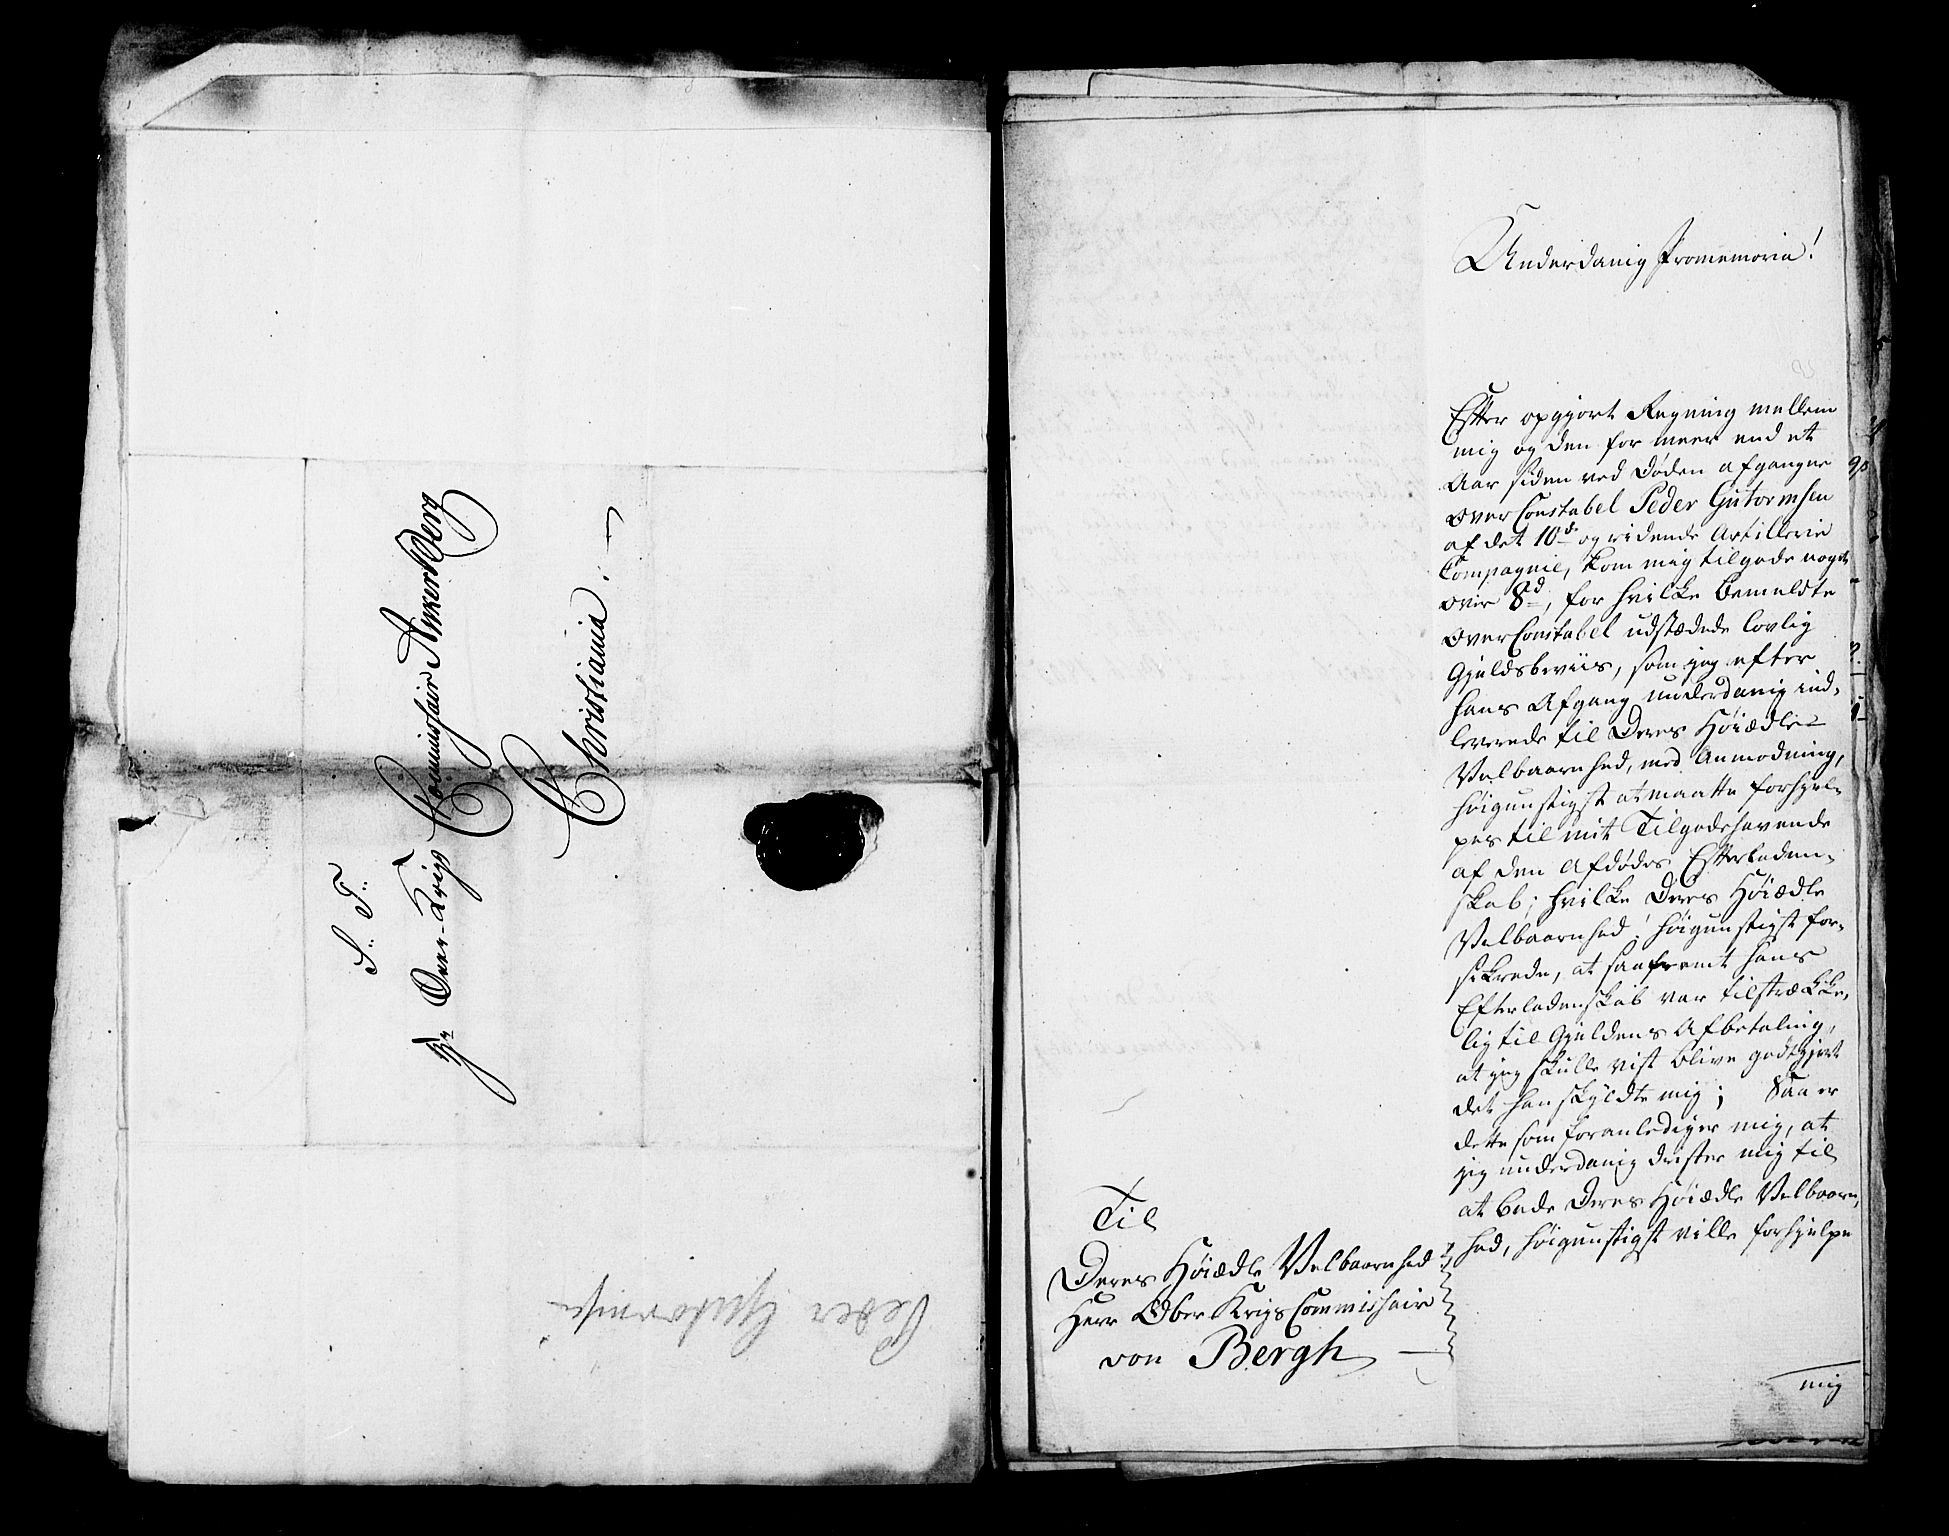 S: T:
Hr Over-Krigs Commissair Anker Berg
Christiania. —
Peder Gutormsen
Underdanig Promemoria!
Efter opgjort Regning mellem
mig og den for meer end et
Aar siden ved Døden afgangne
OverConstabel Peder Gutormsen
af det 10de og ridende Artillerie
Compagnie, kom mig tilgode noget
over 8d, for hvilke bemeldte
OverConstabel udstædede lovlig
Gjeldsbeviis, som jeg efter
hans Afgang underdanig ind-
leverede til Deres Høiædle
Velbaarnhed, med Anmodning,
høigunstigst at maatte forhjel-
pes til mit Tilgodehavende
af den Afdødes Efterladen-
skab; hvilke Deres Høiædle
Velbaarnhed høigunstigst for-
sikrede, at saafremt hans
Efterladenskab var tilstrække-
lig til Gjeldens Afbetaling,
at jeg skulle vist blive godtgjort
det han skyldte mig; Saa er
dette som foranlediger mig, at
jeg underdanig drister mig til
at bede Deres Høiædle Velbaarn-
hed, høigunstigst ville forhjelpe
mig
Til
Deres Høiædle Velbaarnhed
Herr Ober KrigsCommissair
von Bergh